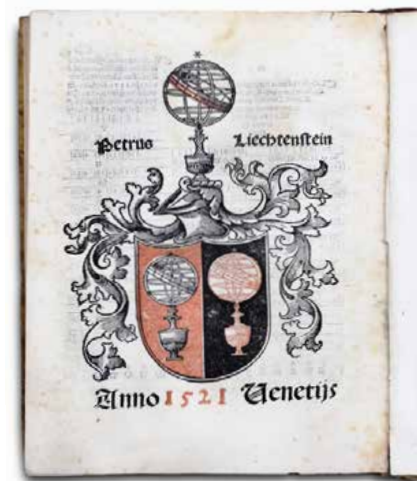 Petrus Liechtenstein
Anno 1521 Venetijs